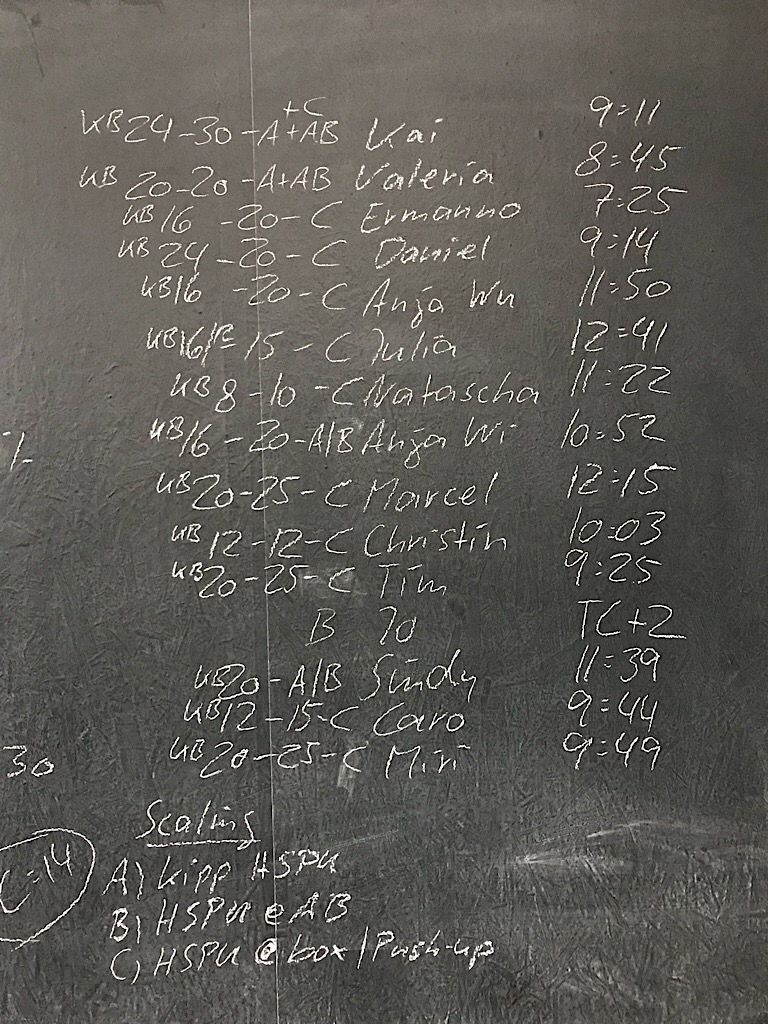 +C
KB 24-30-A+AB Kai 9:11
KB 20-20-A+AB Valeria 8:45
KB 16-20-C Ermanno 7:25
KB 24-20-C Daniel 9:14
KB 16-20-C Anja Wu 11:50
KB 16/12-15-C Julia 12:41
KB 8-10-C Natascha 11:22
KB 16-20-A/B Anja Wi 10:52
KB 20-25-C Marcel 12:15
KB 12-12-C Christin 10:03
KB 20-25-C Tim 9:25
B Jo TC+2
KB 20-A/B Sindy 11:39
KB 12-15-C Caro 9:44
KB 20-25-C Miri 9:49
30
Scaling
=14
A) Kipp HSPU
B) HSPU @ AB
C) HSPU @ box/Push-up